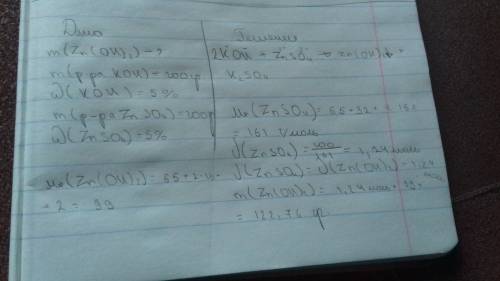 Дано
m(Zn(OH)₂) - ?
m(р-ра KOH) = 200 гр
ω(KOH) = 5%
m(р-ра ZnSO₄) = 200гр
ω(ZnSO₄) = 5%
Mr(Zn(OH)₂) = 65 + 2·17
= 99
Решение
2KOH + ZnSO₄ → Zn(OH)₂↓ +
K₂SO₄
Mr(ZnSO₄) = 65 + 32 + 4·16 =
= 161 г/моль
ν(ZnSO₄) = 200/161 = 1,24 моль
ν(ZnSO₄) = ν(Zn(OH)₂) = 1,24
моль
m(Zn(OH)₂) = 1,24 моль · 99 =
= 122,76 гр